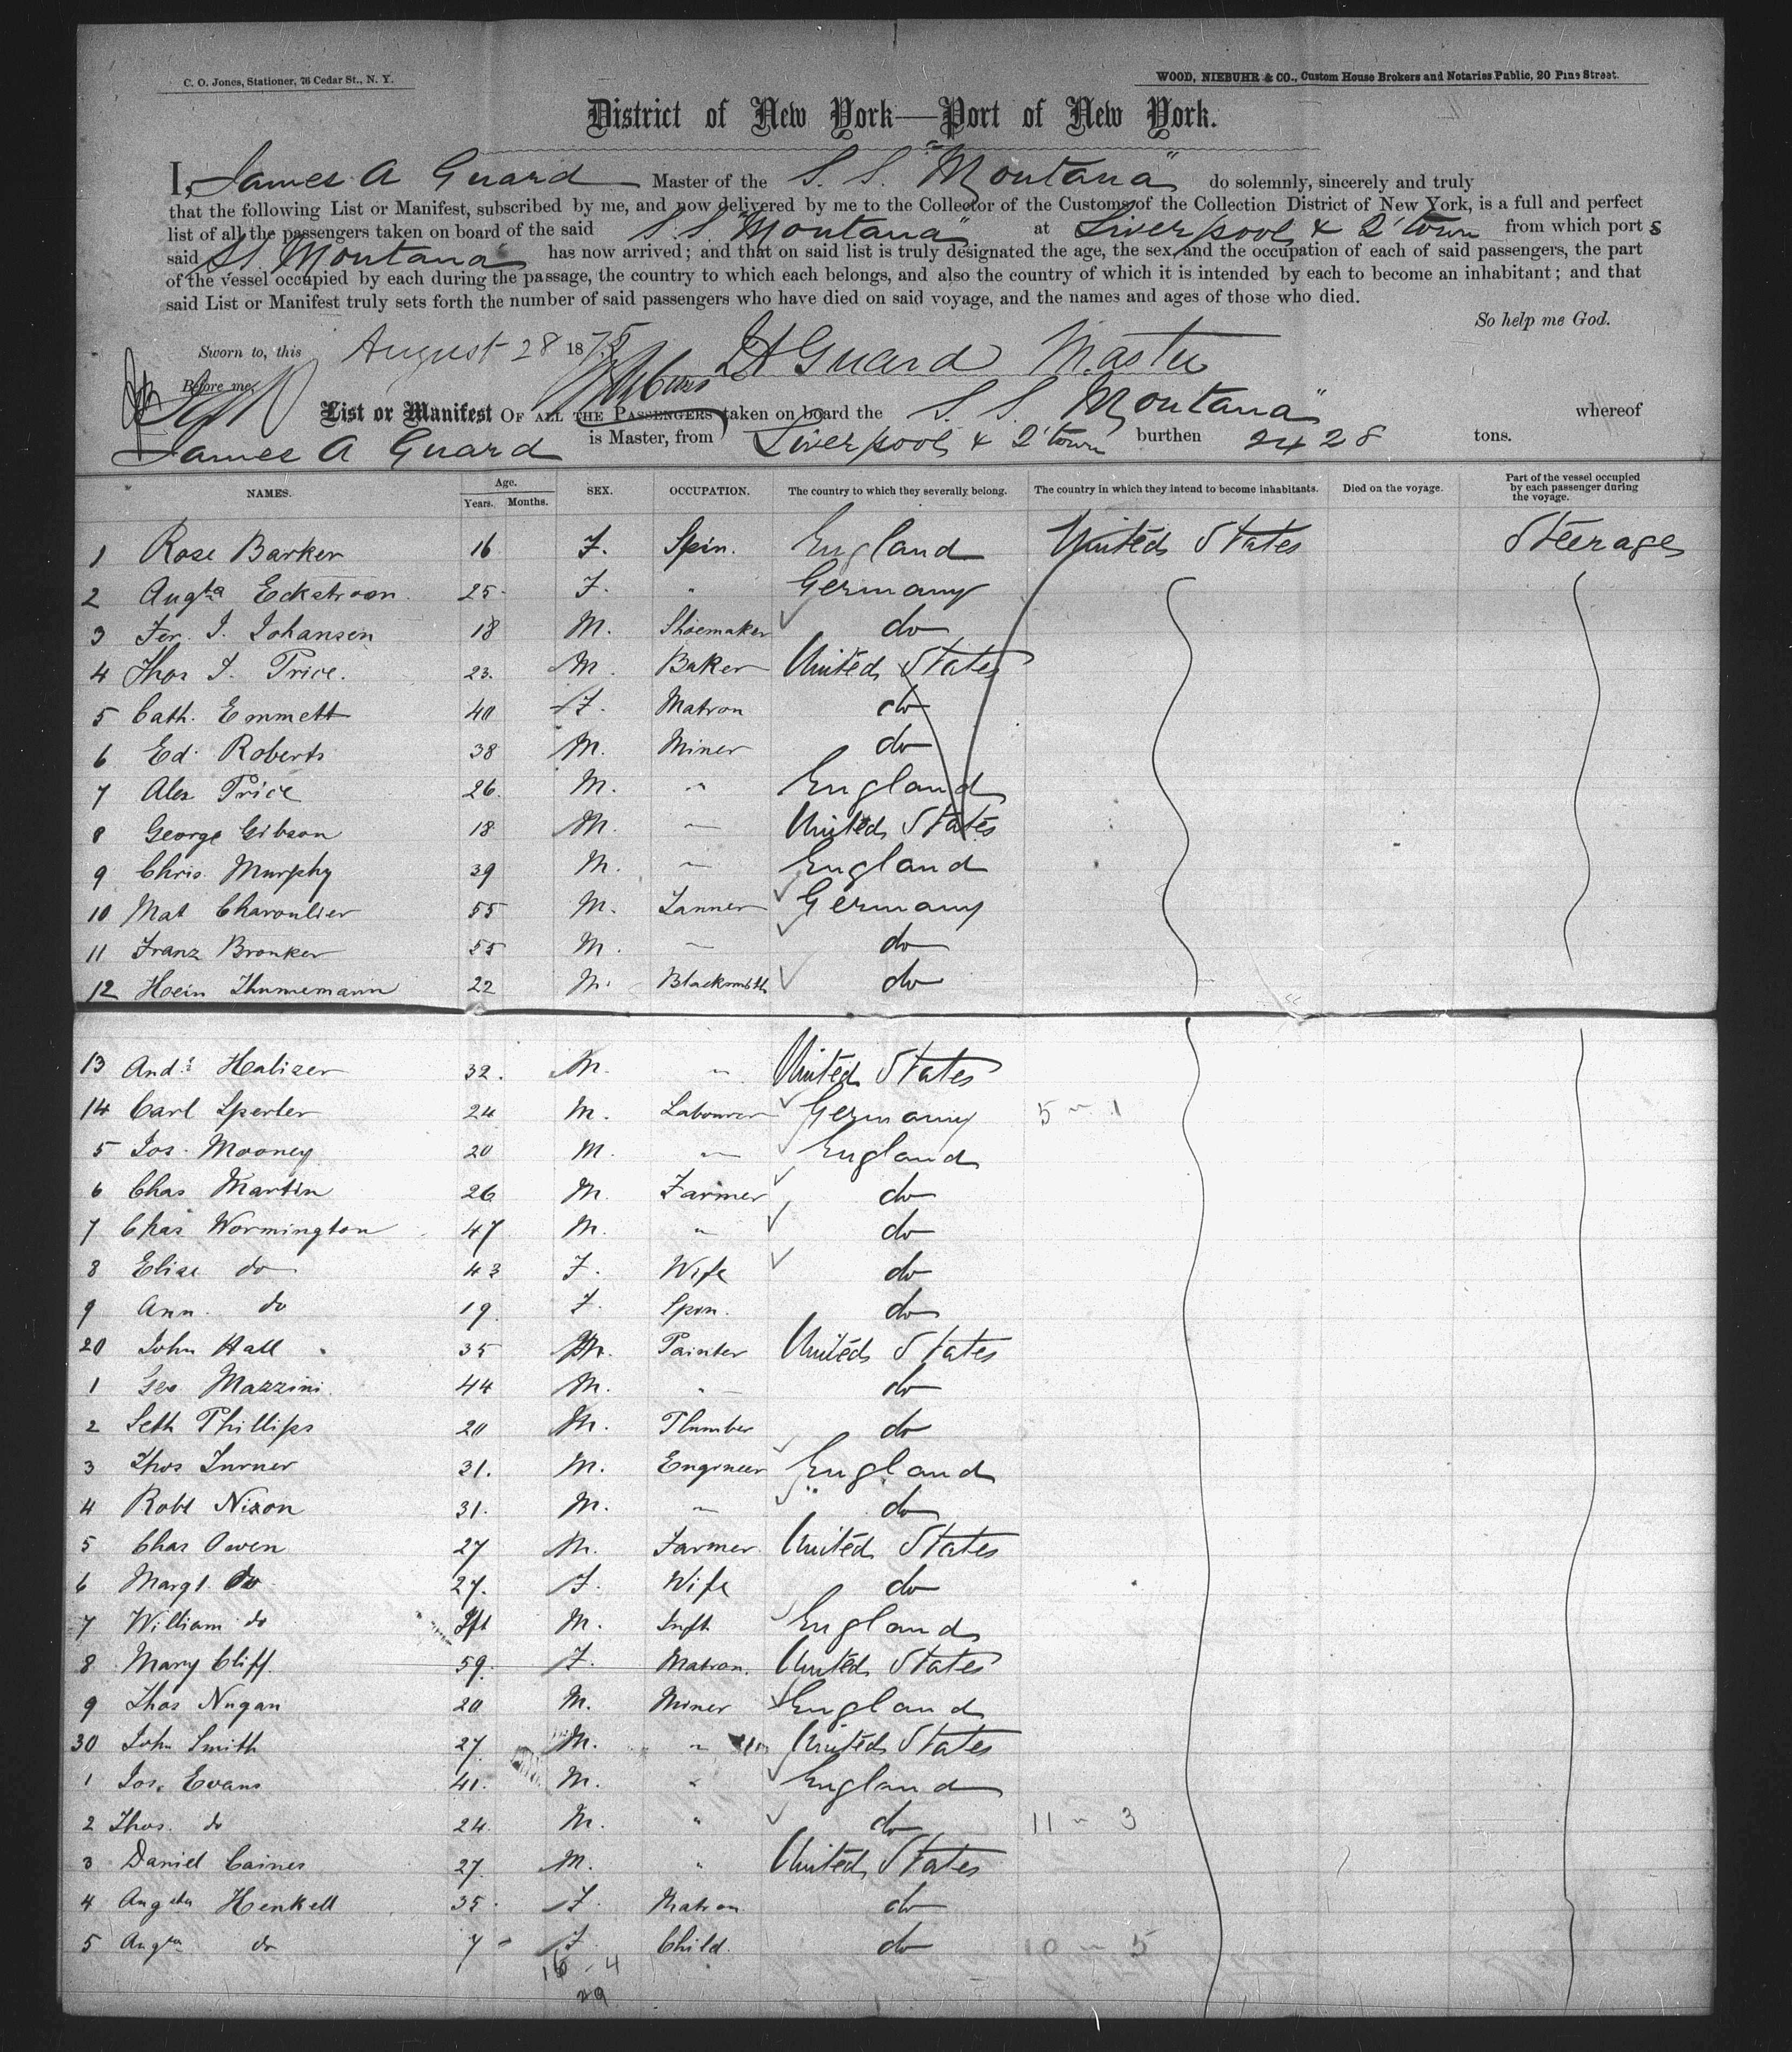 C. O. Jones, Stationer, 76 Cedar St., N. Y.
WOOD, NIEBUHR & CO., Custom House Brokers and Notaries Public, 20 Pine Street.
District of New York—Port of New York.
I, James A Guard Master of the S. S. "Montana" do solemnly, sincerely and truly
that the following List or Manifest, subscribed by me, and now delivered by me to the Collector of the Customs of the Collection District of New York, is a full and perfect
list of all the passengers taken on board of the said S. S. "Montana" at Liverpool & Q'town from which ports
said SS Montana has now arrived; and that on said list is truly designated the age, the sex, and the occupation of each of said passengers, the part
of the vessel occupied by each during the passage, the country to which each belongs, and also the country of which it is intended by each to become an inhabitant; and that
said List or Manifest truly sets forth the number of said passengers who have died on said voyage, and the names and ages of those who died.
So help me God.
Sworn to, this August 28 1875 JAGuard Master
Before me,
List or Manifest OF ALL THE PASSENGERS taken on board the S. S. Montana" whereof
James A Guard is Master, from Liverpool & Q'town burthen 2428 tons.
NAMES. Age. Years. Months. SEX. OCCUPATION. The country to which they severally belong. The country in which they intend to become inhabitants. Died on the voyage. Part of the vessel occupied by each passenger during the voyage.
1 Rose Barker 16 F. Spin. England United States Steerage
2 Augta Eckstroon 25 F. " Germany
3 Fer. J. Johansen 18 M. Shoemaker do
4 Thos J. Price. 23. M. Baker United States
5 Cath. Emmett 40 F. Matron do
6 Ed. Roberts 38 M. Miner do
7 Alex Price 26 M. " England
8 George Gibson 18 M. " United States
9 Chris. Murphy 39 M. " England
10 Mat Charoulier 55 M. Tanner Germany
11 Franz Bronker 55 M. " do
12 Hein Thumemann 22 M. Blacksmith do
13 Ands Halizer 32. M. " United States
14 Carl Sperler 24 M. Labourer Germany 5 - 1
5 Jos. Mooney 20 M. " England
6 Chas Martin 26 M. Farmer do
7 Chas Wormington 47 M. " do
8 Elise do 43 F. Wife do
9 Ann. do 19 F. Spin. do
20 John Hall 35 M. Painter United States
1 Geo Mazzini 44 M. " do
2 Seth Phillips 20 M. Plumber do
3 Thos Turner 31. M. Engineer England
4 Robt Nixon 31. M. " do
5 Chas Owen 27 M. Farmer United States
6 Margt. do 27. F. Wife do
7 William do Ift M. Inft England
8 Mary Cliff. 59. F. Matron. United States
9 Thos Nugan 20 M. Miner England
30 John Smith 27 M. " United States
1 Jos. Evans 41. M. " England
2 Thos. do 24. M. " do 11 - 3
3 Daniel Caines 27. M. " United States
4 Angela Henkell 35. F. Matron do
5 Augta do 7 F. Child. do 10 - 5
16 - 4
29